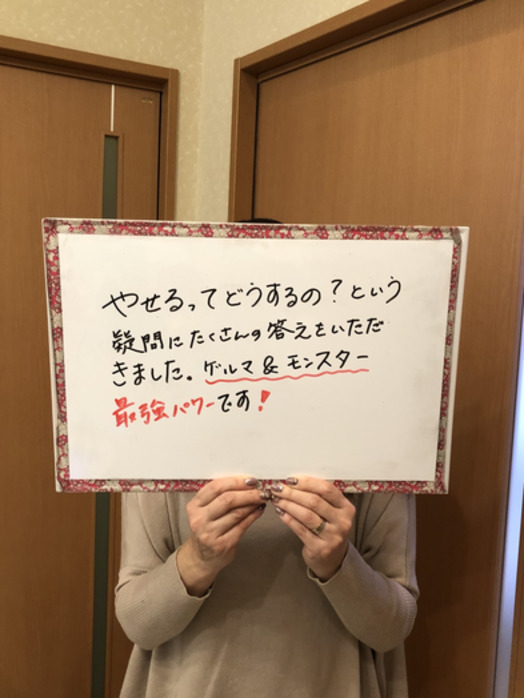 やせるってどうするの？という
疑問にたくさんの答えをいただ
きました。ゲルマ & モンスター
最強パワーです！